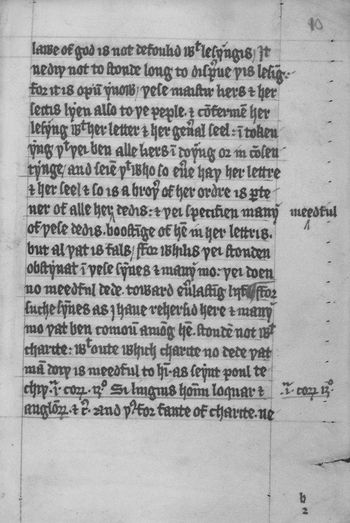 10
lawe of god is not defoulid wt lesyngis / It
nediþ not to stonde long to dispˀue þis lesīg
for it is opū ynow / þese maistir lyers & her
sectis lyen also to þe peple. & cōfermen her
lesyng wt her letter & her geñal seel: ī token
yng þt þei ben alle lyers ī doyng or in cōsen
tynge / and seie þt who so eũe haþ her lettre
& her seel & so is a broþ of her ordre is ꝑte
ner of alle her dedis: & þei specifien many
of þese dedis. boostīge of hē in her lettris.
but al þat is fals / ffor whilis þei stonden
obstynat ī þese synes & many mo: þei doen
no meedful dede. toward eũlastīg lyf / ffor
suche synes as I haue rehersid here & many
mo þat ben comoū amōg hē. stondē not wt
charite: wtoute which charite no dede þat
mā doiþ is meedful to hī. as seynt poul te
chiþ .iͣ. corͬ. 13º Si linguis hoīm loquar &
anglorͬ. & cͭ. and þˀfor faute of charite. ne
meedful
.iͣ. corͬ 13º.
b
2